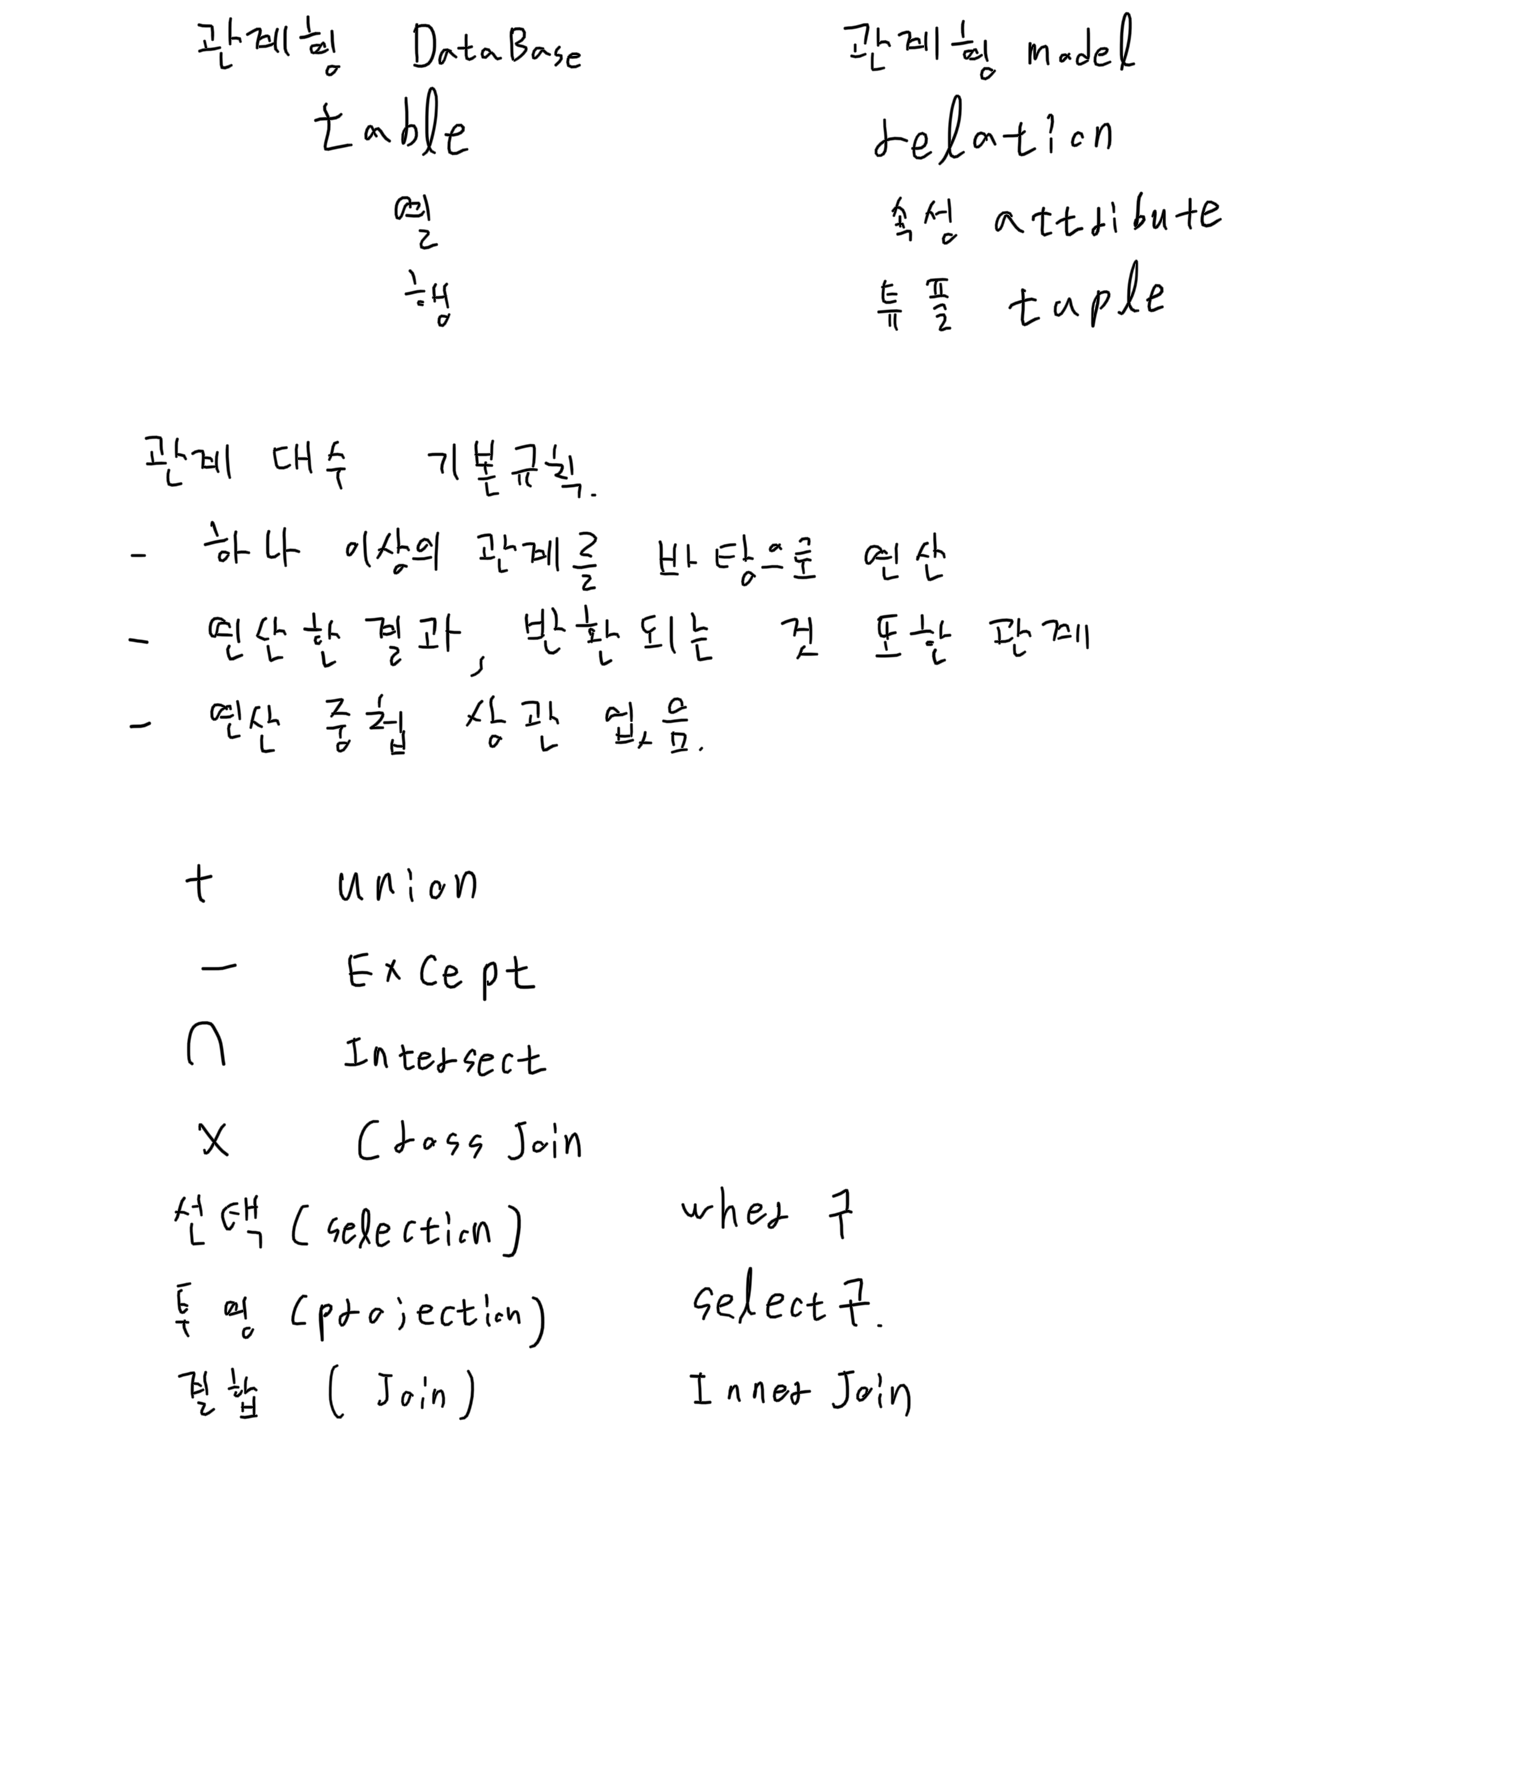 관계형 DataBase 관계형 model
table relation
열 속성 attribute
행 튜플 tuple
관계 대수 기본규칙.
- 하나 이상의 관계를 바탕으로 연산
- 연산한 결과, 반환되는 것 또한 관계
- 연산 중첩 상관 없음.
+ union
- Except
∩ Intersect
x Cross Join
선택 (selection) wher 구
투영 (projection) select구.
결합 (Join) Inner Join